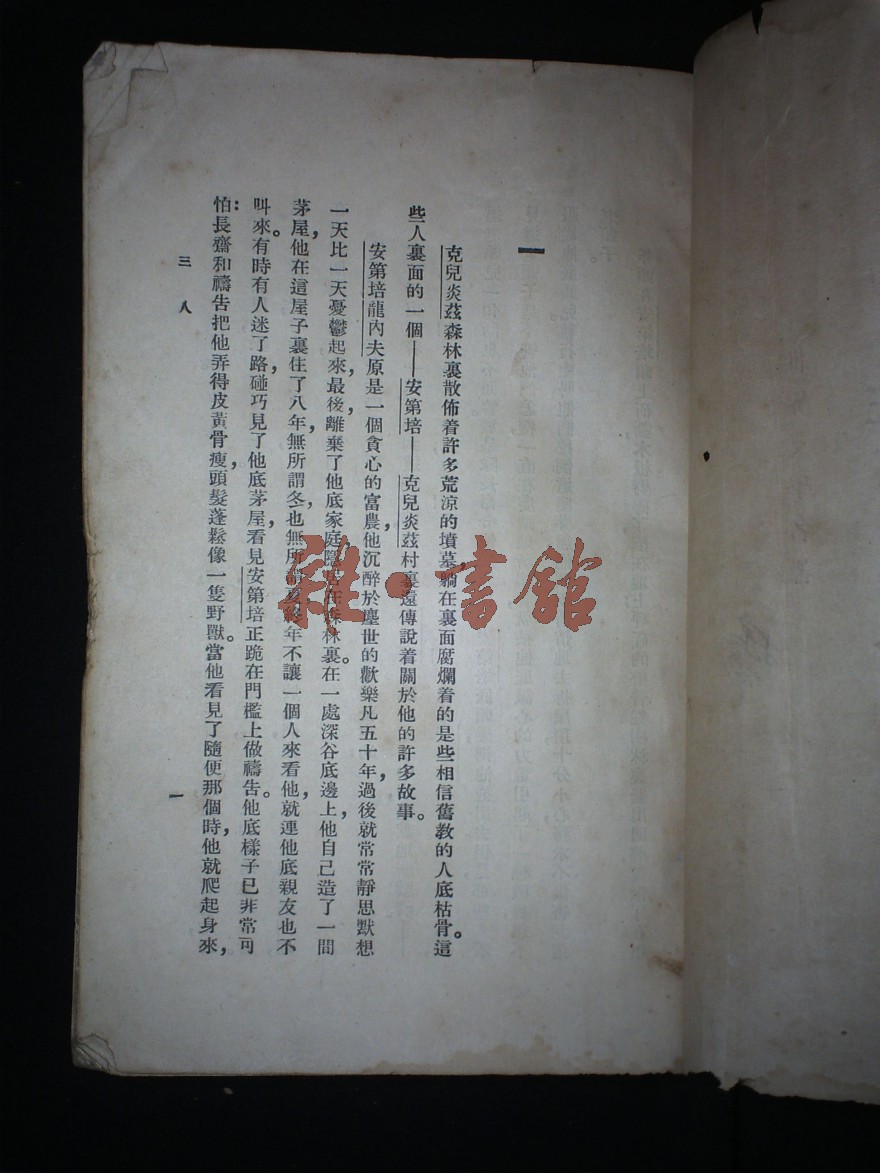 一
克兒炎茲森林裏散佈着許多荒涼的墳墓，躺在裏面腐爛着的是些相信舊教的人底枯骨。這
些人裏面的一個——安第培——克兒炎茲村裏遠傳說着關於他的許多故事。
安第培龍內夫原是一個貪心的富農，他沉醉於塵世的歡樂凡五十年，過後就常常靜思默想
一天比一天憂鬱起來，最後，離棄了他底家庭，隱居在森林裏。在一處深谷底邊上，他自己造了一間
茅屋，他在這屋子裏住了八年，無所謂冬，也無所謂夏，終年不讓一個人來看他，就連他底親友也不
叫來。有時有人迷了路，碰巧見了他底茅屋，看見安第培正跪在門檻上做禱告。他底樣子已非常可
怕：長齋和禱告把他弄得皮黃骨瘦，頭髮蓬鬆像一隻野獸。當他看見了隨便那個時，他就爬起身來，
三人
一
雜·書館